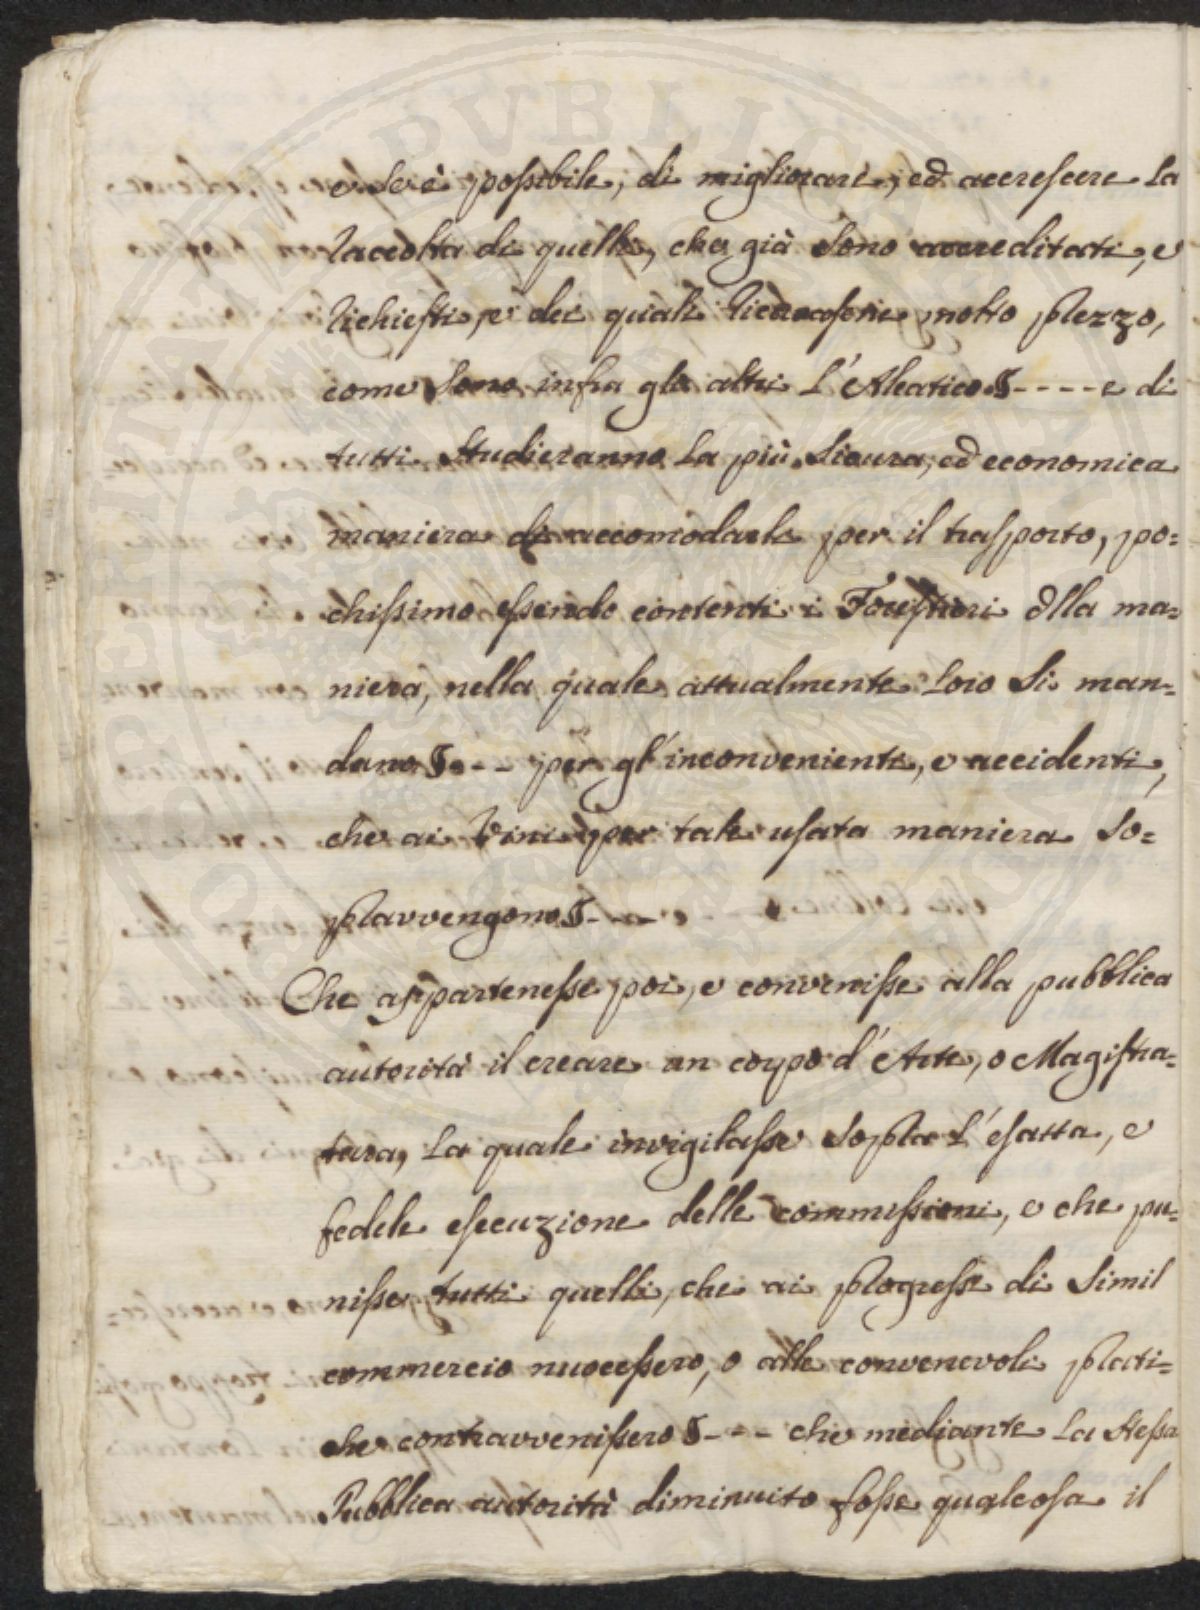 e se è possibile, di migliorare, ed accrescere la
raccolta di quelli, che già sono accreditati, e
richiesti, e dei quali riscuotesi molto prezzo,
come sono infra gli altri l'Aleatico &---- e di
tutti studieranno la più sicura, ed economica
maniera di accomodarli per il trasporto, po=
chissimo essendo contenti i Forestieri dlla ma=
niera, nella quale attualmente loro si man=
dano &--- per gl'inconvenienti, e accidenti,
che ai Vini per tale usata maniera so=
pravvengono &---
Che appartenesse poi, e convenisse alla pubblica
autorità il creare un corpo d'Arte, o Magistra=
tura, la quale invigilasse sopra l'esatta, e
fedele esecuzione delle commissioni, e che pu=
nisse tutti quelli, che ai progressi di simil
commercio nuocessero, o alle convenevoli prati=
che contravvenissero &--- che mediante la stessa
Pubblica autorità diminuito fosse qualcosa il